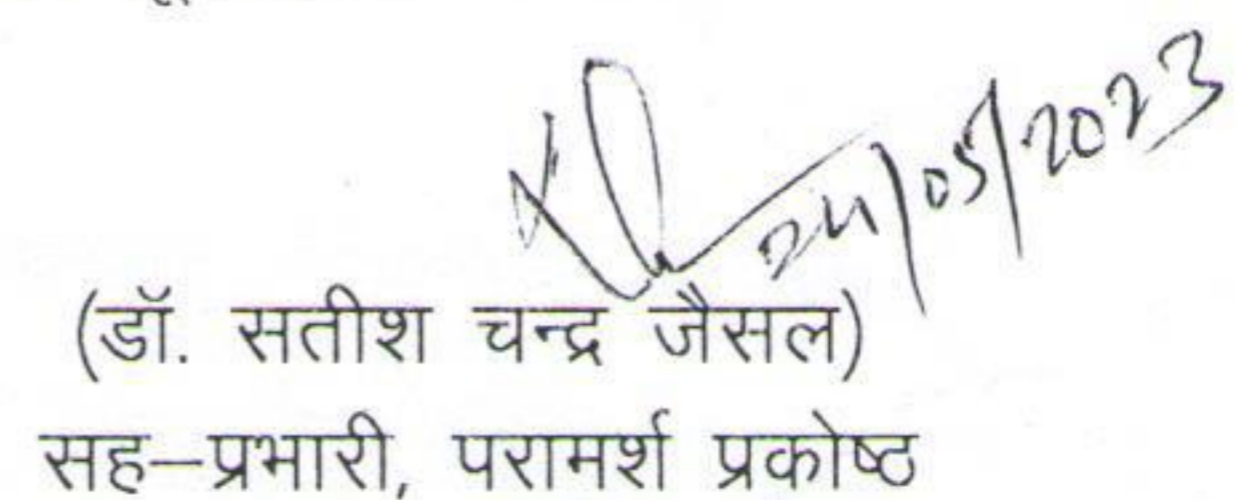 24/05/2023
(डॉ. सतीश चन्द्र जैसल)
सह–प्रभारी, परामर्श प्रकोष्ठ